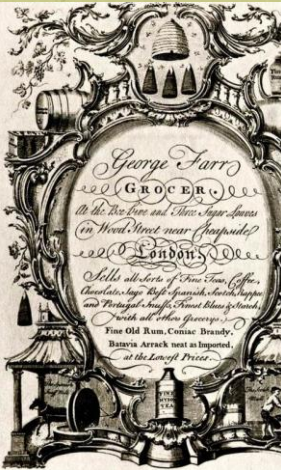 George Farr
GROCER,
At the Bee-hive and Three Sugar Loaves
in Wood Street near Cheapside
London
Sells all Sorts of Fine Teas, Coffee,
Chocolate, Sago Best Spanish, Scotch, Rappee
and Portugal Snuffs, Finest Blues & Starch,
with all others Grocerys
Fine Old Rum, Coniac Brandy,
Batavia Arrack neat as Imported,
at the Lowest Prices.
FINE
HYSON
TEA